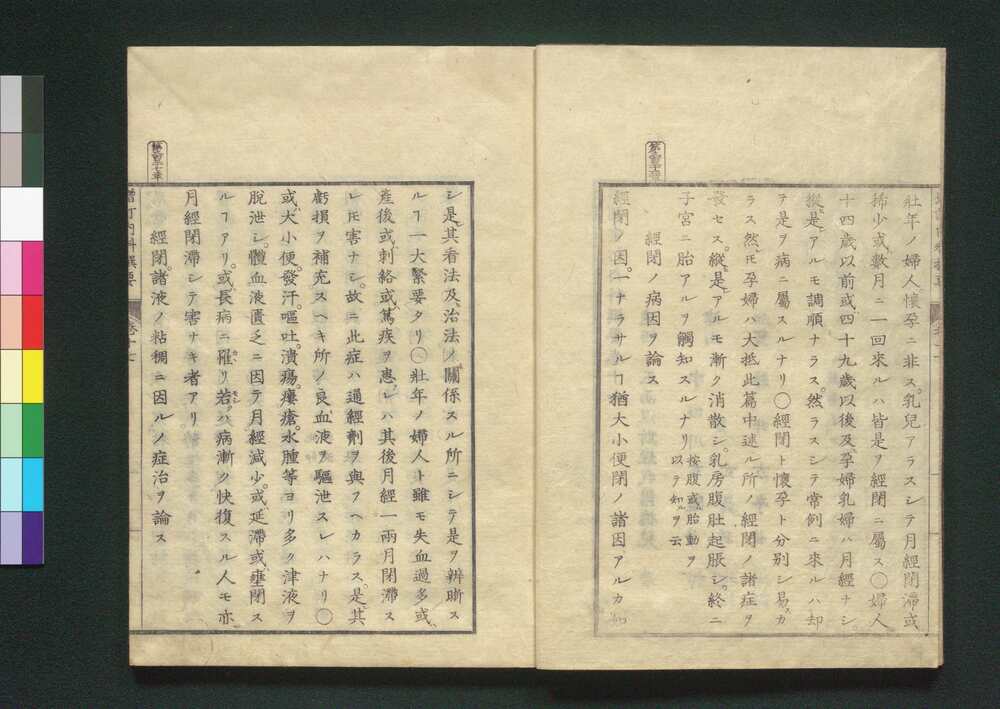 壯年ノ婦人懷孕ニ非ス乳兒アラスシテ月經閉滯或
稀少或數月ニ一回來ルハ皆是ヲ經閉ニ屬ス〇婦人
十四歲以前或四十九歲以後及孕婦乳婦ハ月經ナシ
縱是アルモ調順ナラス然ラスシテ常例ニ來ルハ却
テ是ヲ病ニ屬スルナリ〇經閉ト懷孕ト分別シ易カ
ラス然𪜈孕婦ハ大抵此篇中述ル所ノ經閉ノ諸症ヲ
發セス縱是アルモ漸ク消散シ乳房腹肚起脹シ終ニ
子宮ニ胎アルヲ觸知スルナリ按腹或胎動ヲ
以テ知ヲ云
經閉ノ病因ヲ論ス
經閉ノ因一ナラサルヿ猶大小便閉ノ諸因アルカ如
シ是其看法及治法ノ關係スル所ニシテ是ヲ辨晰ス
ルヿ一大緊要タリ〇壯年ノ婦人ト雖モ失血過多或
產後或刺絡或篤疾ヲ患レハ其後月經一兩月閉滯ス
レ𪜈害ナシ故ニ此症ハ通經劑ヲ與フヘカラス是其
虧損ヲ補充スヘキ所ノ良血液ヲ驅泄スレハナリ〇
或大小便發汗嘔吐潰瘍瘻瘡水腫等ヨリ多ク津液ヲ
脫泄シ體血液匱乏ニ因テ月經減少或延滯或壅閉ス
ルヿアリ或長病ニ罹リ若ハ病漸ク快復スル人モ亦
月經閉滯シテ害ナキ者アリ
經閉諸液ノ粘稠ニ因ルノ症治ヲ論ス
增訂內科撰要